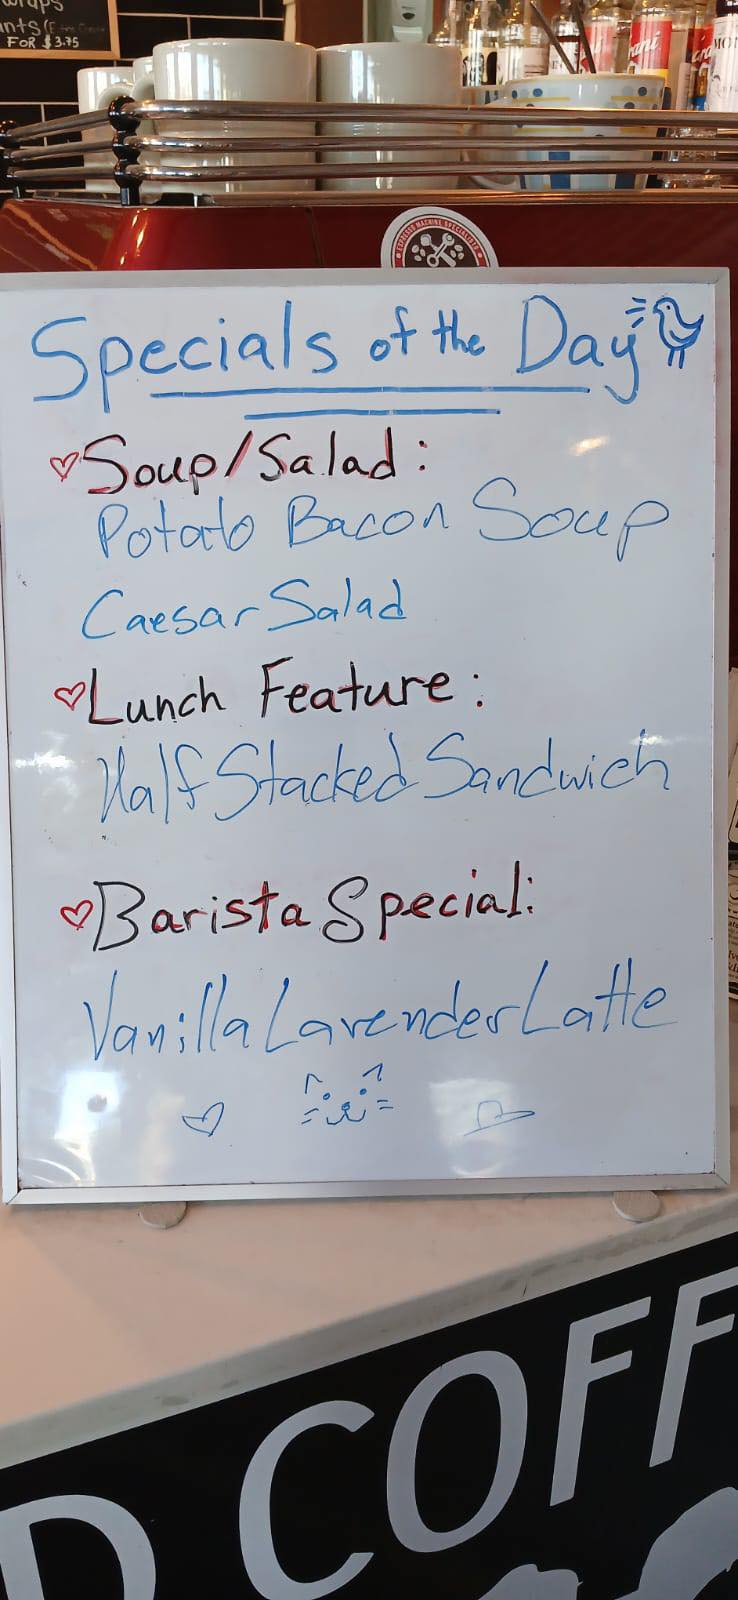 FOR $3.75
ESPRESSO MACHINE SPECIALISTS
Specials of the Day
Soup/Salad:
Potato Bacon Soup
Caesar Salad
Lunch Feature:
Half Stacked Sandwich
Barista Special:
Vanilla Lavender Latte
D COFF